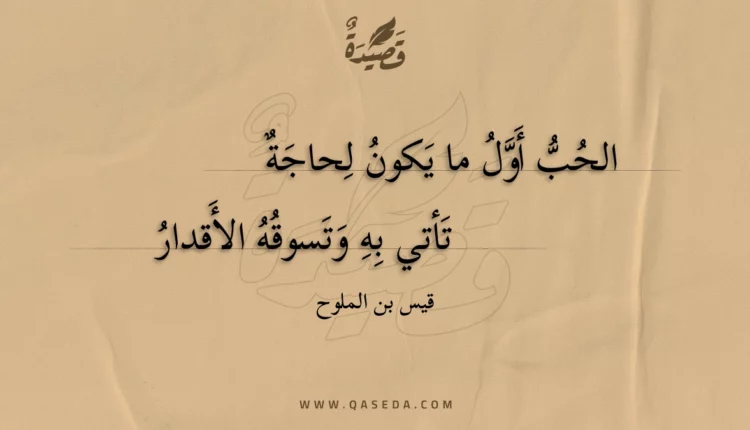 قَصِيدَةٌ
الحُبُّ أَوَّلُ ما يَكونُ لِحاجَةٌ
تَأتي بِهِ وَتَسوقُهُ الأَقدارُ
قيس بن الملوح
WWW.QASEDA.COM